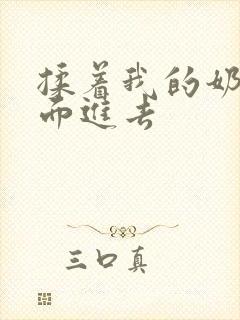 揉着我的奶
而進去
三口真